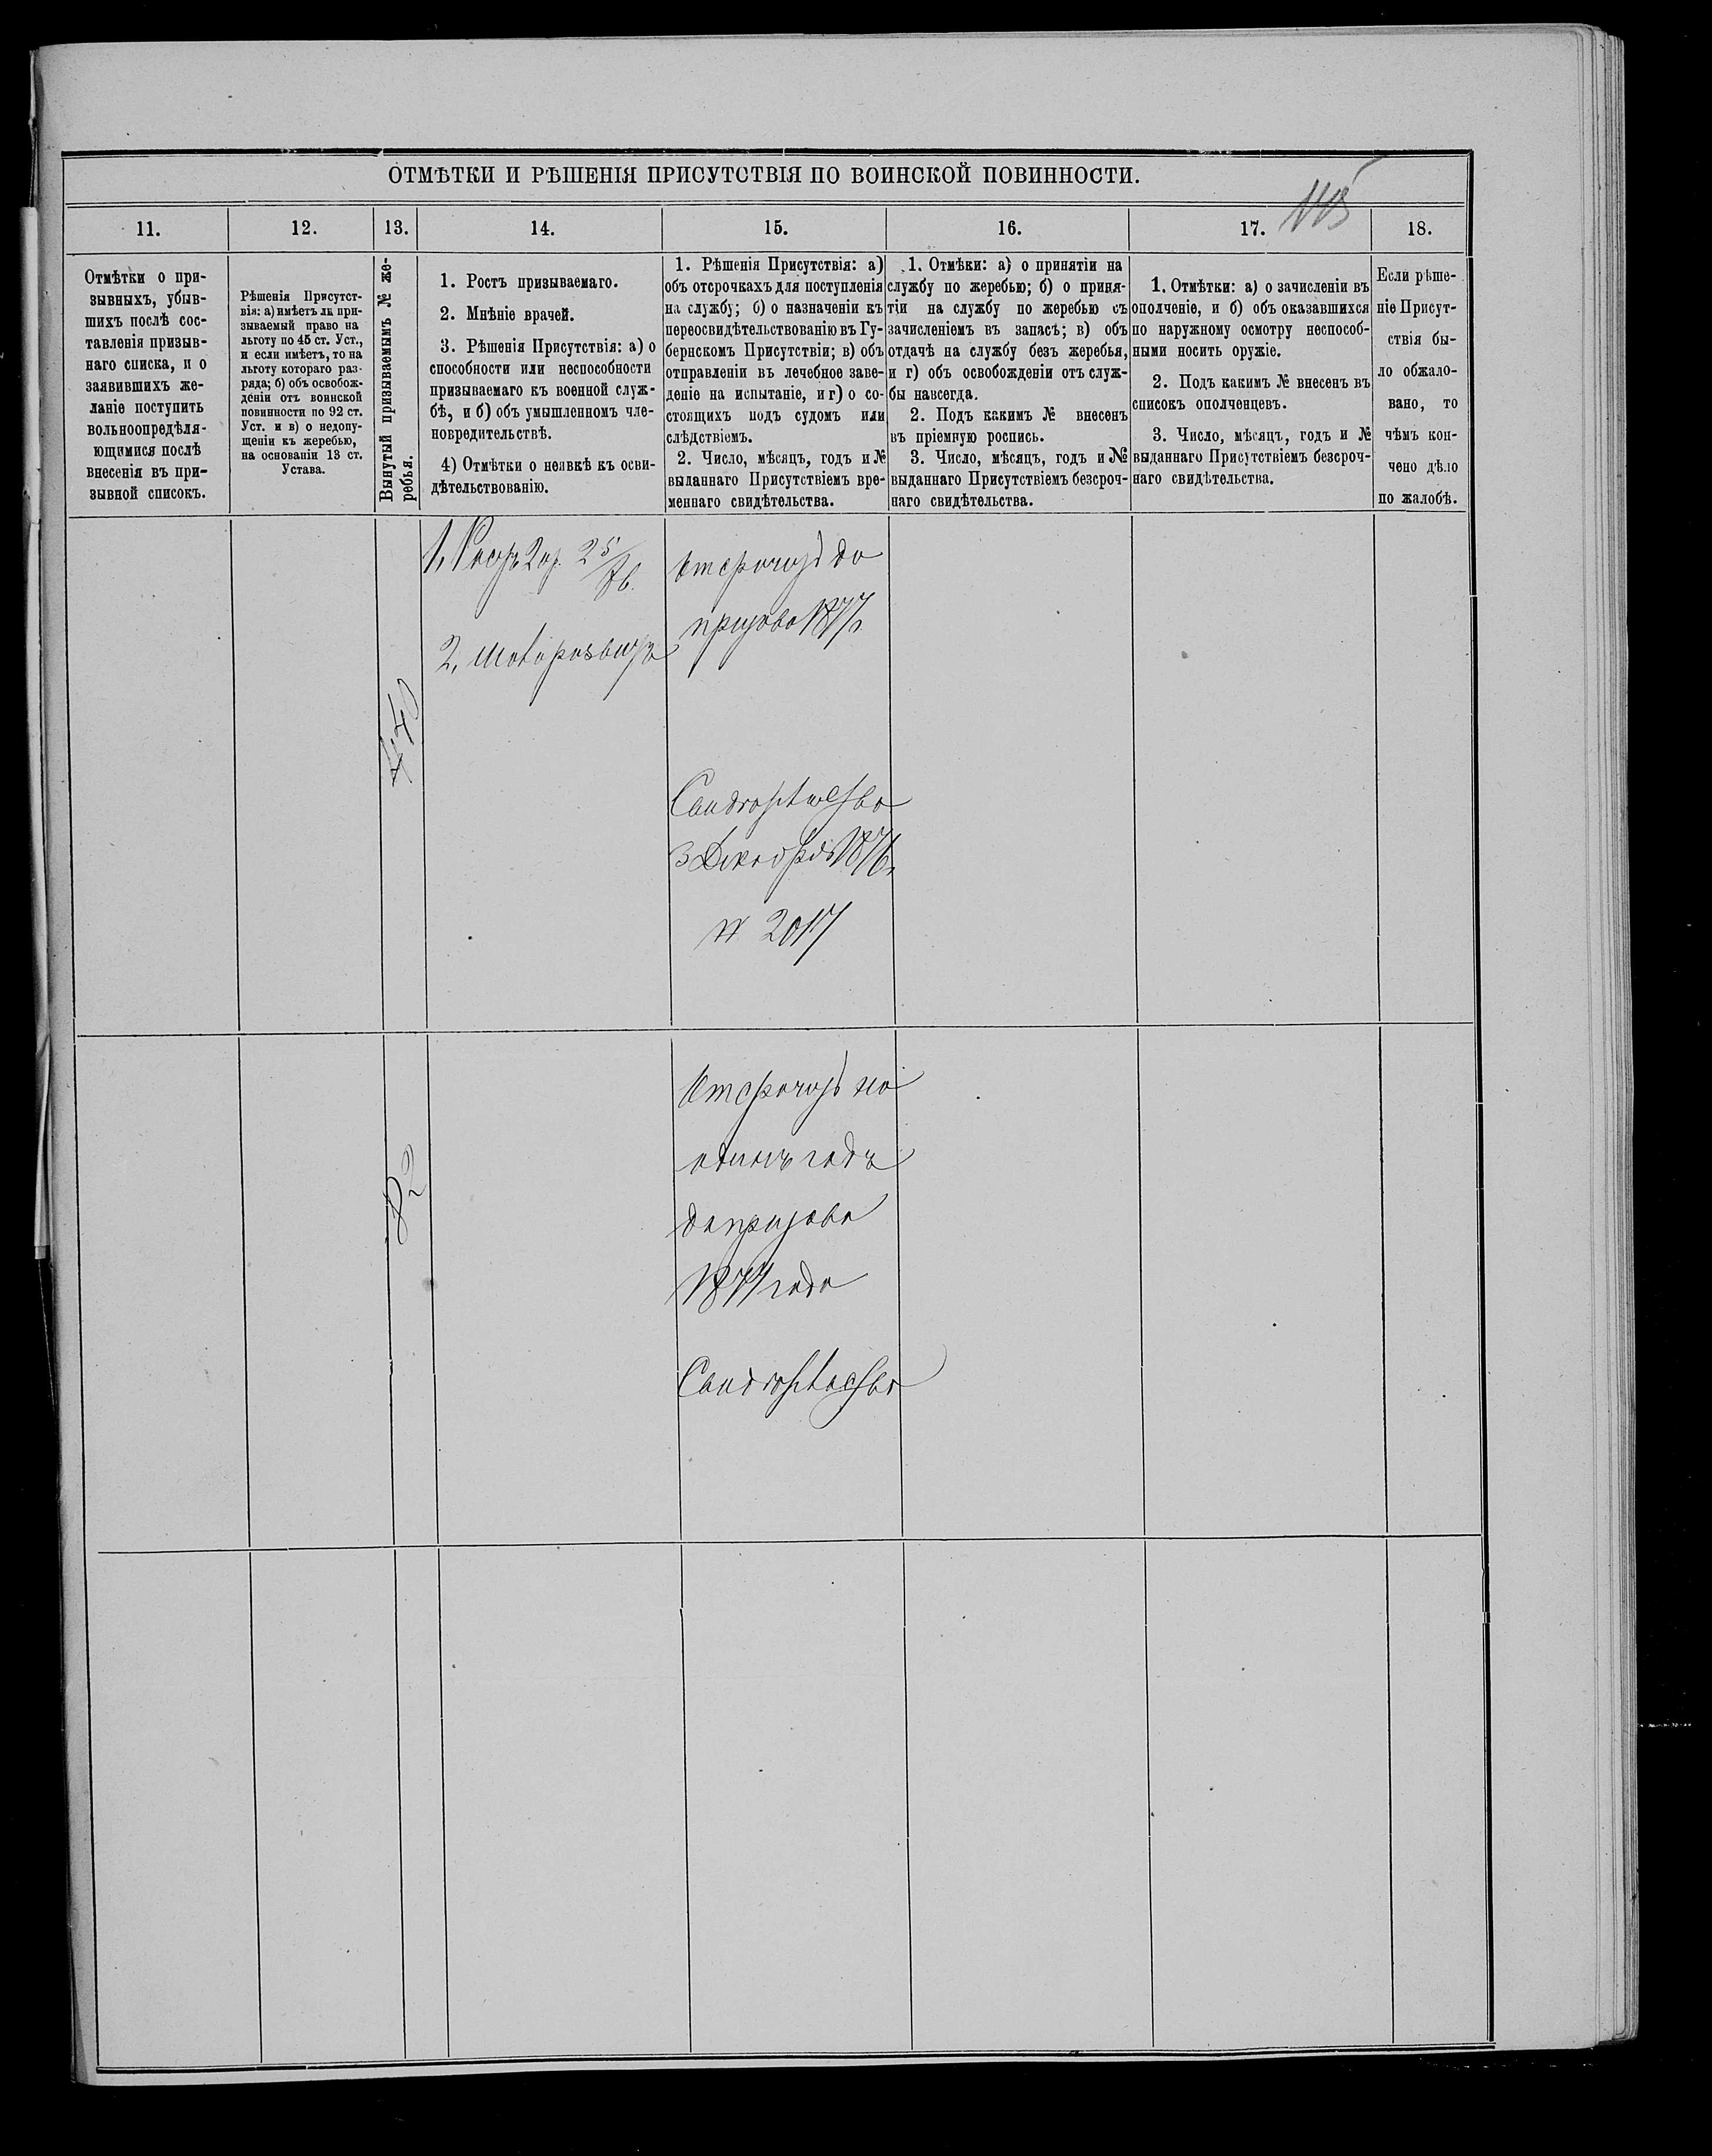 ОТМѢТКИ И РѢШЕНІЯ ПРИСУТСТВІЯ ПО ВОИНСКОЙ ПОВИННОСТИ.
145
11.
12.
13.
14.
15.
16.
17.
18.
Отмѣтки о при-
зывныхъ, убыв-
шихъ послѣ сос-
тавленія призыв-
наго списка, и о
заявившихъ же-
ланіе поступить
вольноопредѣля-
ющимися послѣ
внесенія въ при-
зывной списокъ.
Рѣшенія Присутст-
вія: а) имѣетъ ли при-
зываемый право на
льготу по 45 ст. Уст.,
и если имѣетъ, то на
льготу котораго раз-
ряда; б) объ освобож-
деніи отъ воинской
повинности по 92 ст.
Уст. и в) о недопу-
щеніи къ жеребью,
на основаніи 13 ст.
Устава.
Вынутый призываемымъ № же-
ребья.
1. Ростъ призываемаго.
2. Мнѣніе врачей.
3. Рѣшенія Присутствія: а) о
способности или неспособности
призываемаго къ военной служ-
бѣ, и б) объ умышленномъ чле-
новредительствѣ.
4) Отмѣтки о неявкѣ къ осви-
дѣтельствованію.
1. Рѣшенія Присутствія: а)
объ отсрочкахъ для поступленія
на службу; б) о назначеніи къ
переосвидѣтельствованію въ Гу-
бернскомъ Присутствіи; в) объ
отправленіи въ лечебное заве-
деніе на испытаніе, и г) о со-
стоящихъ подъ судомъ или
слѣдствіемъ.
2. Число, мѣсяцъ, годъ и №
выданнаго Присутствіемъ вре-
меннаго свидѣтельства.
1. Отмѣки: а) о принятіи на
службу по жеребью; б) о приня-
тіи на службу по жеребью съ
зачисленіемъ въ запасъ; в) объ
отдачѣ на службу безъ жеребья,
и г) объ освобожденіи отъ служ-
бы навсегда.
2. Подъ какимъ № внесенъ
въ пріемную роспись.
3. Число, мѣсяцъ, годъ и №
выданнаго Присутствіемъ безсроч-
наго свидѣтельства.
1. Отмѣтки: а) о зачисленіи въ
ополченіе, и б) объ оказавшихся
по наружному осмотру неспособ-
ными носить оружіе.
2. Подъ какимъ № внесенъ въ
списокъ ополченцевъ.
3. Число, мѣсяцъ, годъ и №
выданнаго Присутствіемъ безсроч-
наго свидѣтельства.
Если рѣше-
ніе Присут-
ствія бы-
ло обжало-
вано, то
чѣмъ кон-
чено дѣло
по жалобѣ.
440
1. Ростъ 2 ар. 2 5/8 в.
2.
Отсрочить до
призыва 1877 г.
Свидѣтельство
3 Декабря 1876 г.
№ 2017
82
Отсрочить на
одинъ годъ
до призыва
1877 года
Свидѣтельство